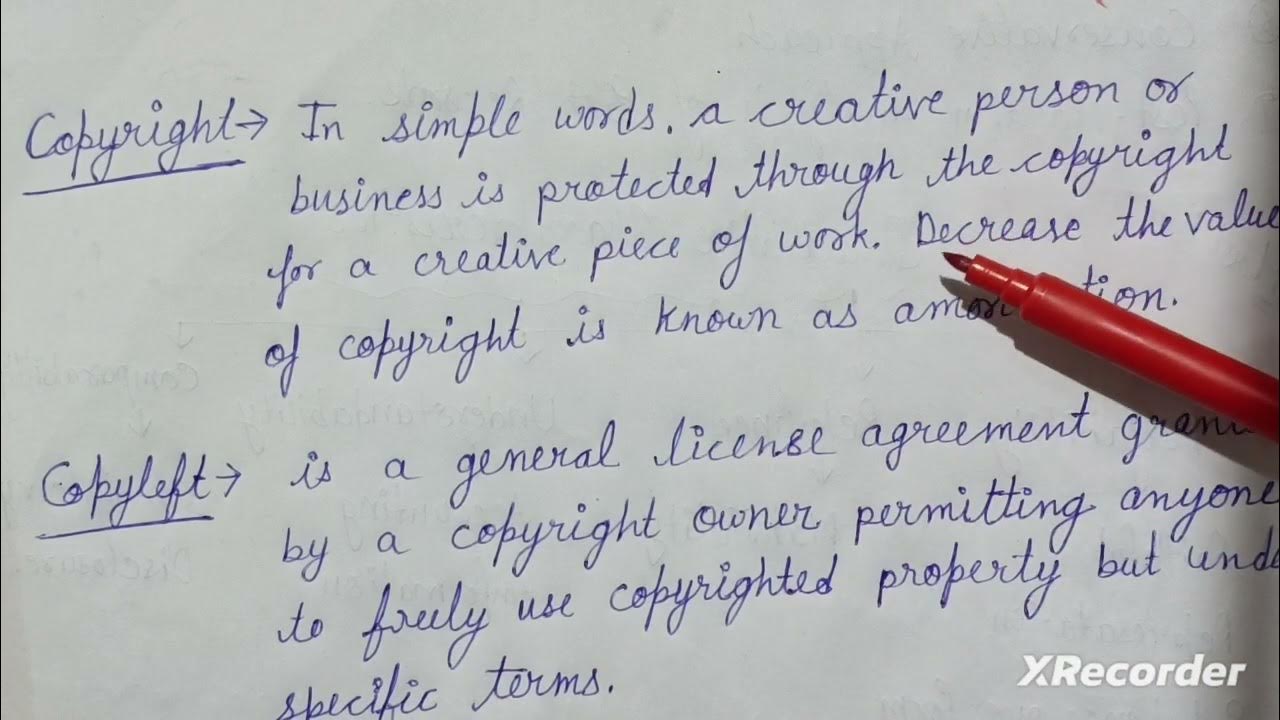 Copyright → In simple words, a creative person or
business is protected through the copyright
for a creative piece of work. Decrease the value
of copyright is known as
Copyleft → is a general license agreement
by a copyright owner permitting anyone
to freely use copyrighted property but
specific terms.
XRecorder